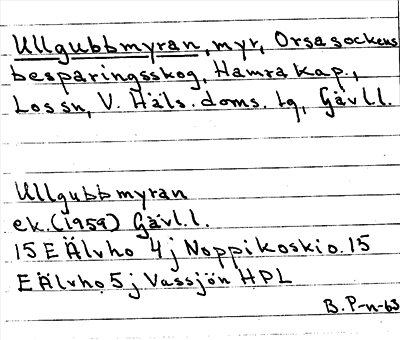 Ullgubbmyran, myr, Orsa sockens
besparingsskog, Hamra kap.,
Los sn, V. Häls. doms. tg, Gävl.l.
Ullgubbmyran
ek. (1959) Gävl.l.
15 E Älvho 4 j Noppikoskio. 15
E Älvho 5 j Vassjön HPL
B. P-n-63